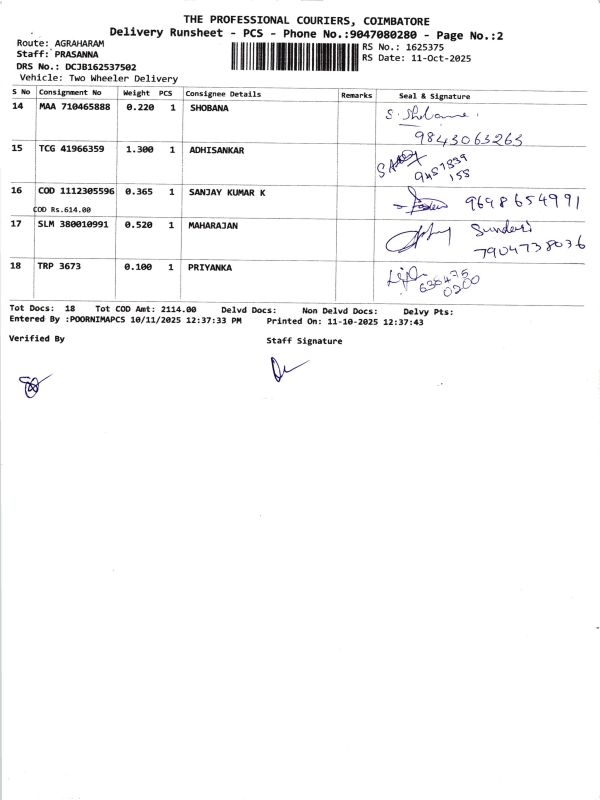 THE PROFESSIONAL COURIERS, COIMBATORE
Delivery Runsheet - PCS - Phone No.:9047080280 - Page No.:2
Route: AGRAHARAM
Staff: PRASANNA
DRS No.: DCJB162537502
Vehicle: Two Wheeler Delivery
RS No.: 1625375
RS Date: 11-Oct-2025
S No Consignment No Weight PCS Consignee Details Remarks Seal & Signature
14 MAA 710465888 0.220 1 SHOBANA S. Shobana.
9843063263
15 TCG 41966359 1.300 1 ADHISANKAR
9487839
155
16 COD 1112305596 0.365 1 SANJAY KUMAR K 9698654991
COD Rs.614.00
17 SLM 380010991 0.520 1 MAHARAJAN Sundari
7904738036
18 TRP 3673 0.100 1 PRIYANKA
630475
0200
Tot Docs: 18 Tot COD Amt: 2114.00 Delvd Docs: Non Delvd Docs: Delvy Pts:
Entered By :POORNIMAPCS 10/11/2025 12:37:33 PM Printed On: 11-10-2025 12:37:43
Verified By Staff Signature